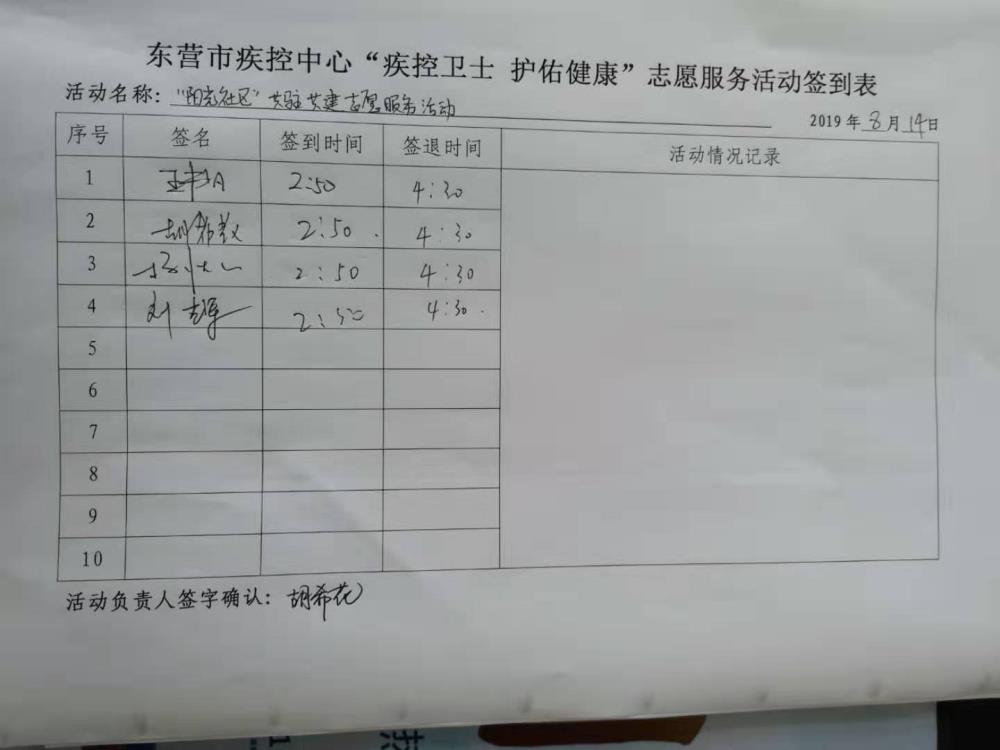 东营市疾控中心“疾控卫士 护佑健康”志愿服务活动签到表
活动名称：“阳光社区”共驻共建志愿服务活动
2019年8月14日
序号 签名 签到时间 签退时间 活动情况记录
1 2:50 4:30
2 胡希 2:50 4:30
3 2:50 4:30
4 刘 2:50 4:30
5
6
7
8
9
10
活动负责人签字确认：胡希花